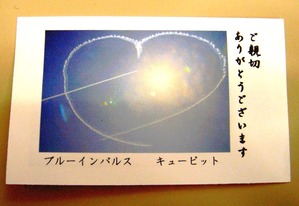 ご親切
ありがとうございます
ブルーインパルス　　キューピット